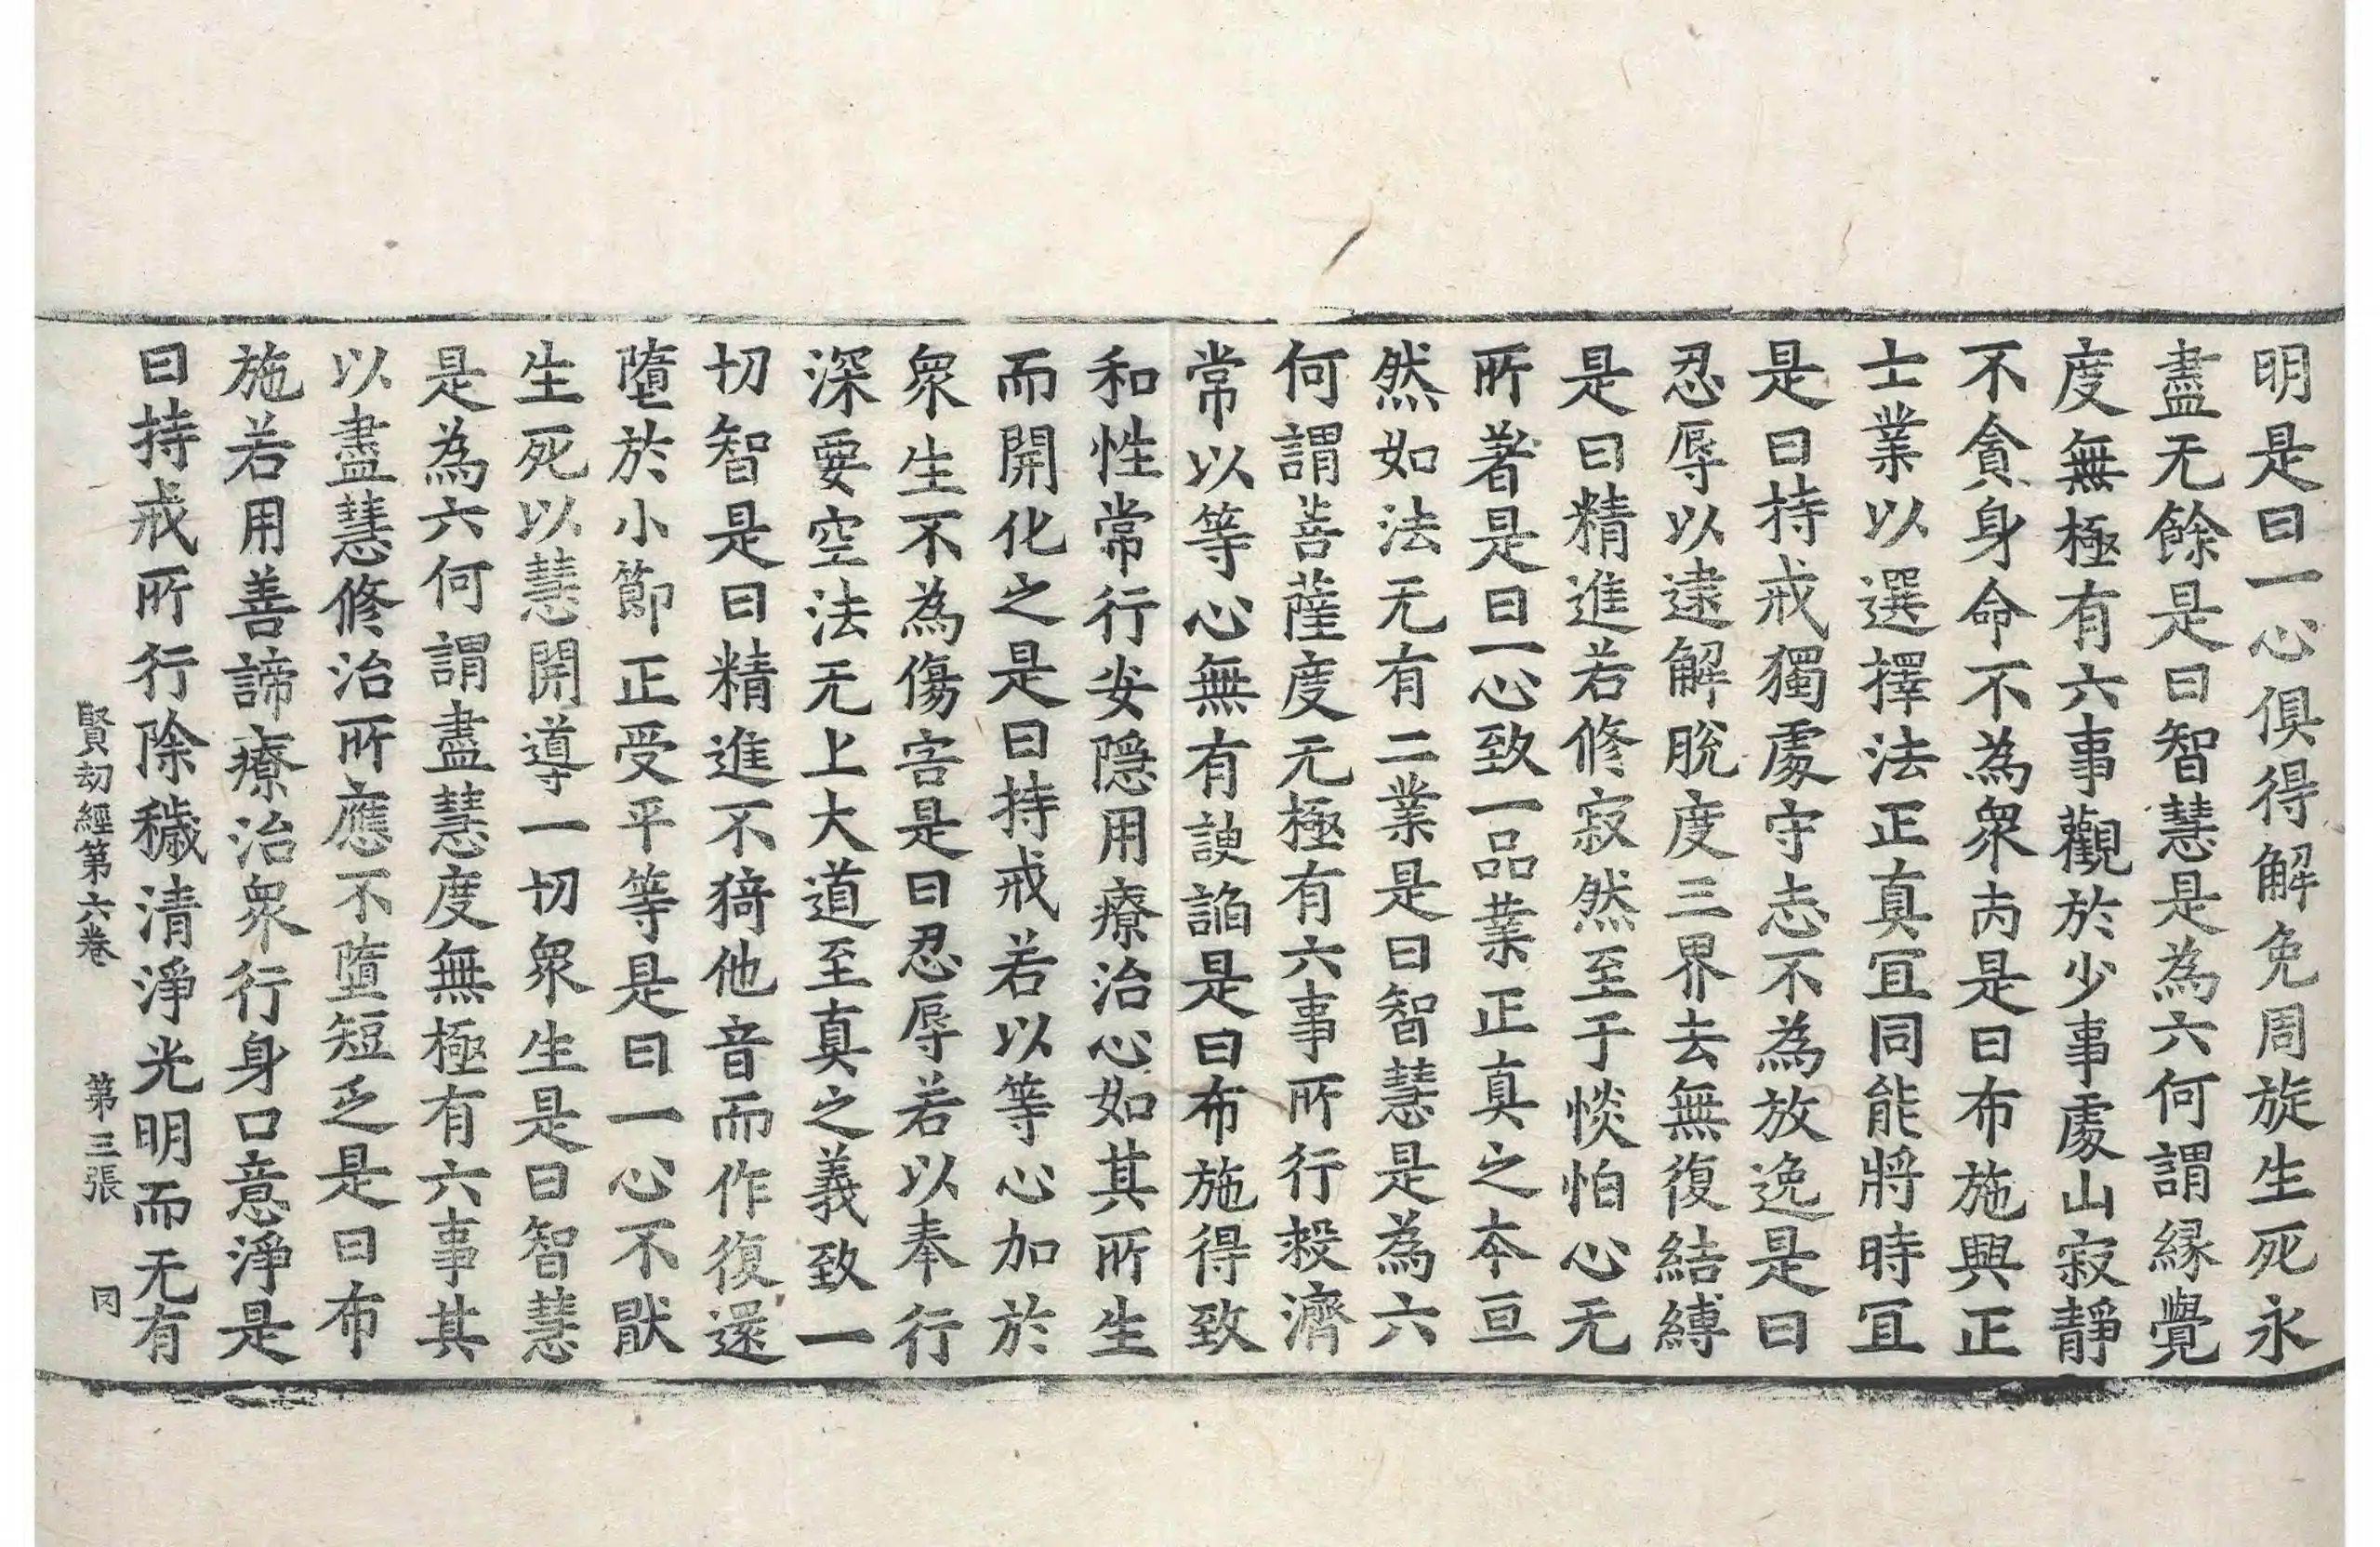 明是曰一心俱得解免周旋生死永
盡无餘是曰智慧是為六何謂緣覺
度無極有六事觀於少事處山寂靜
不貪身命不為衆㐫是曰布施興正
士業以選擇法正真冝同能將時冝
是曰持戒獨處守志不為放逸是曰
忍辱以逮解脫度三界去無復結縛
是曰精進若修寂然至于惔怕心无
所著是曰一心致一品業正真之夲亘
然如法无有二業是曰智慧是為六
何謂菩薩度无極有六事所行救濟
常以等心無有諛諂是曰布施得致
和性常行安隱用療治心如其所生
而開化之是曰持戒若以等心加於
衆生不為傷害是曰忍辱若以奉行
深要空法无上大道至真之義致一
切智是曰精進不猗他音而作復還
墮於小節正受平等是曰一心不猒
生死以慧開導一切衆生是曰智慧
是為六何謂盡慧度無極有六事其
以盡慧修治所應不墮短乏是曰布
施若用善諦療治衆行身口意淨是
曰持戒所行除穢清淨光明而无有
賢劫經第六卷 第三張